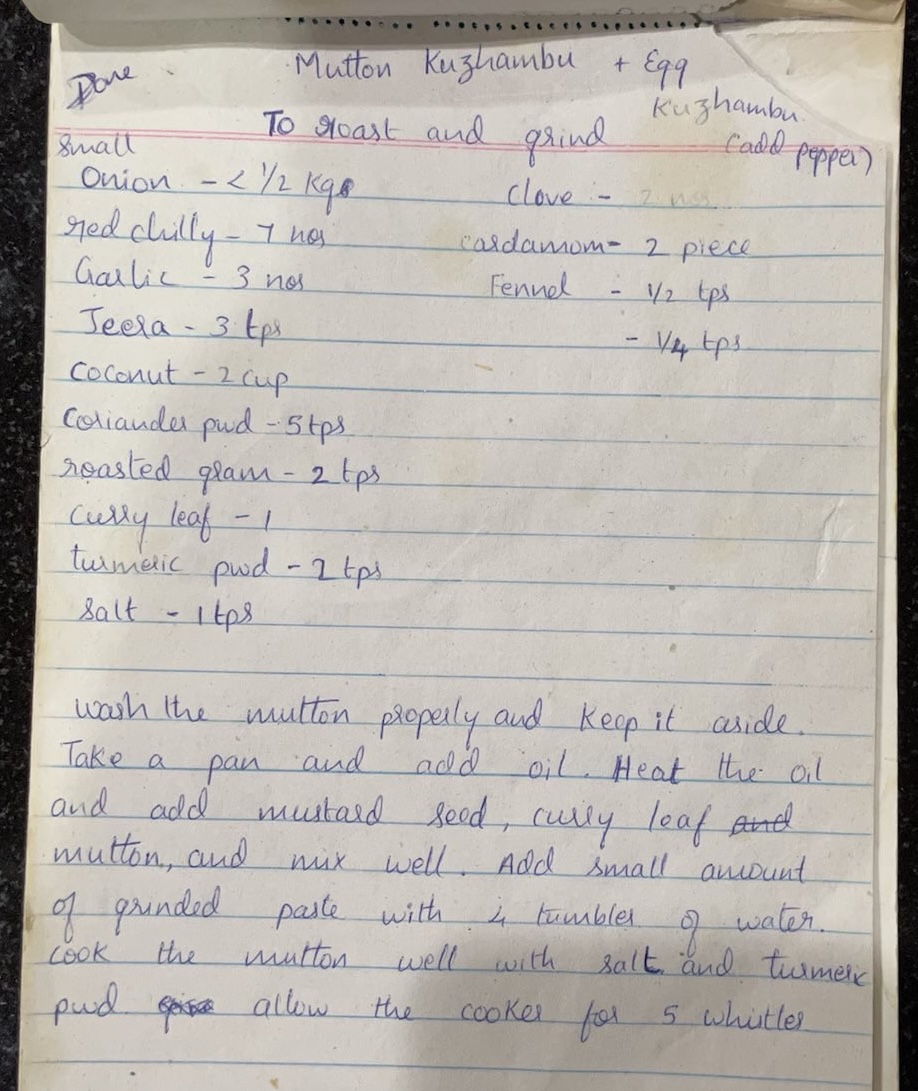 Done
Mutton Kuzhambu + Egg
Kuzhambu
(add pepper)
To roast and grind
small
Onion - < 1/2 Kg
red chilly - 7 nos
Garlic - 3 nos
Jeera - 3 tps
coconut - 2 cup
Coriander pwd - 5 tps
roasted gram - 2 tps
curry leaf - 1
turmeric pwd - 2 tps
salt - 1 tps
Clove - 2 nos
cardamom - 2 piece
Fennel - 1/2 tps
- 1/4 tps
wash the mutton properly and keep it aside.
Take a pan and add oil. Heat the oil
and add mustard seed, curry leaf and
mutton, and mix well. Add small amount
of grinded paste with 4 tumbler of water.
cook the mutton well with salt and turmeric
pwd allow the cooker for 5 whistles